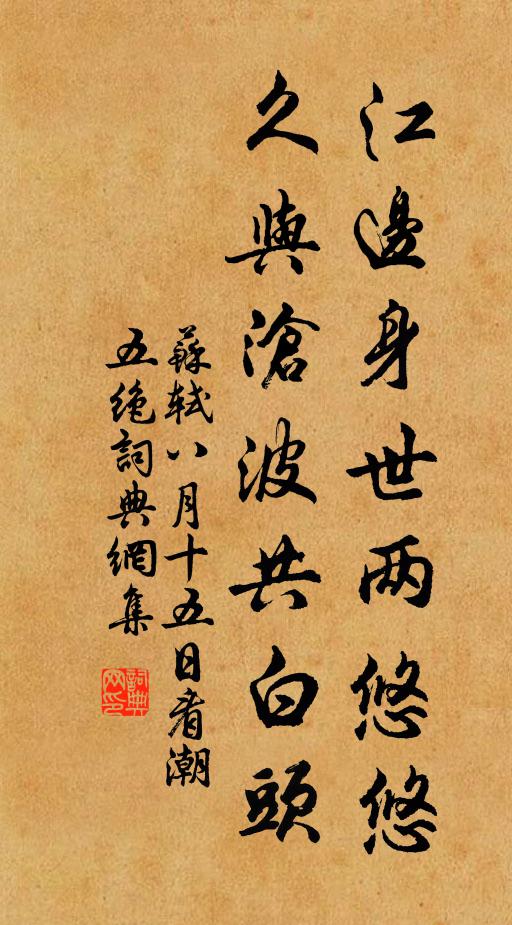 江邊身世两悠悠
久與滄波共白頭
蘇軾八月十五日看潮
五絶詞典網集
詞典
网印